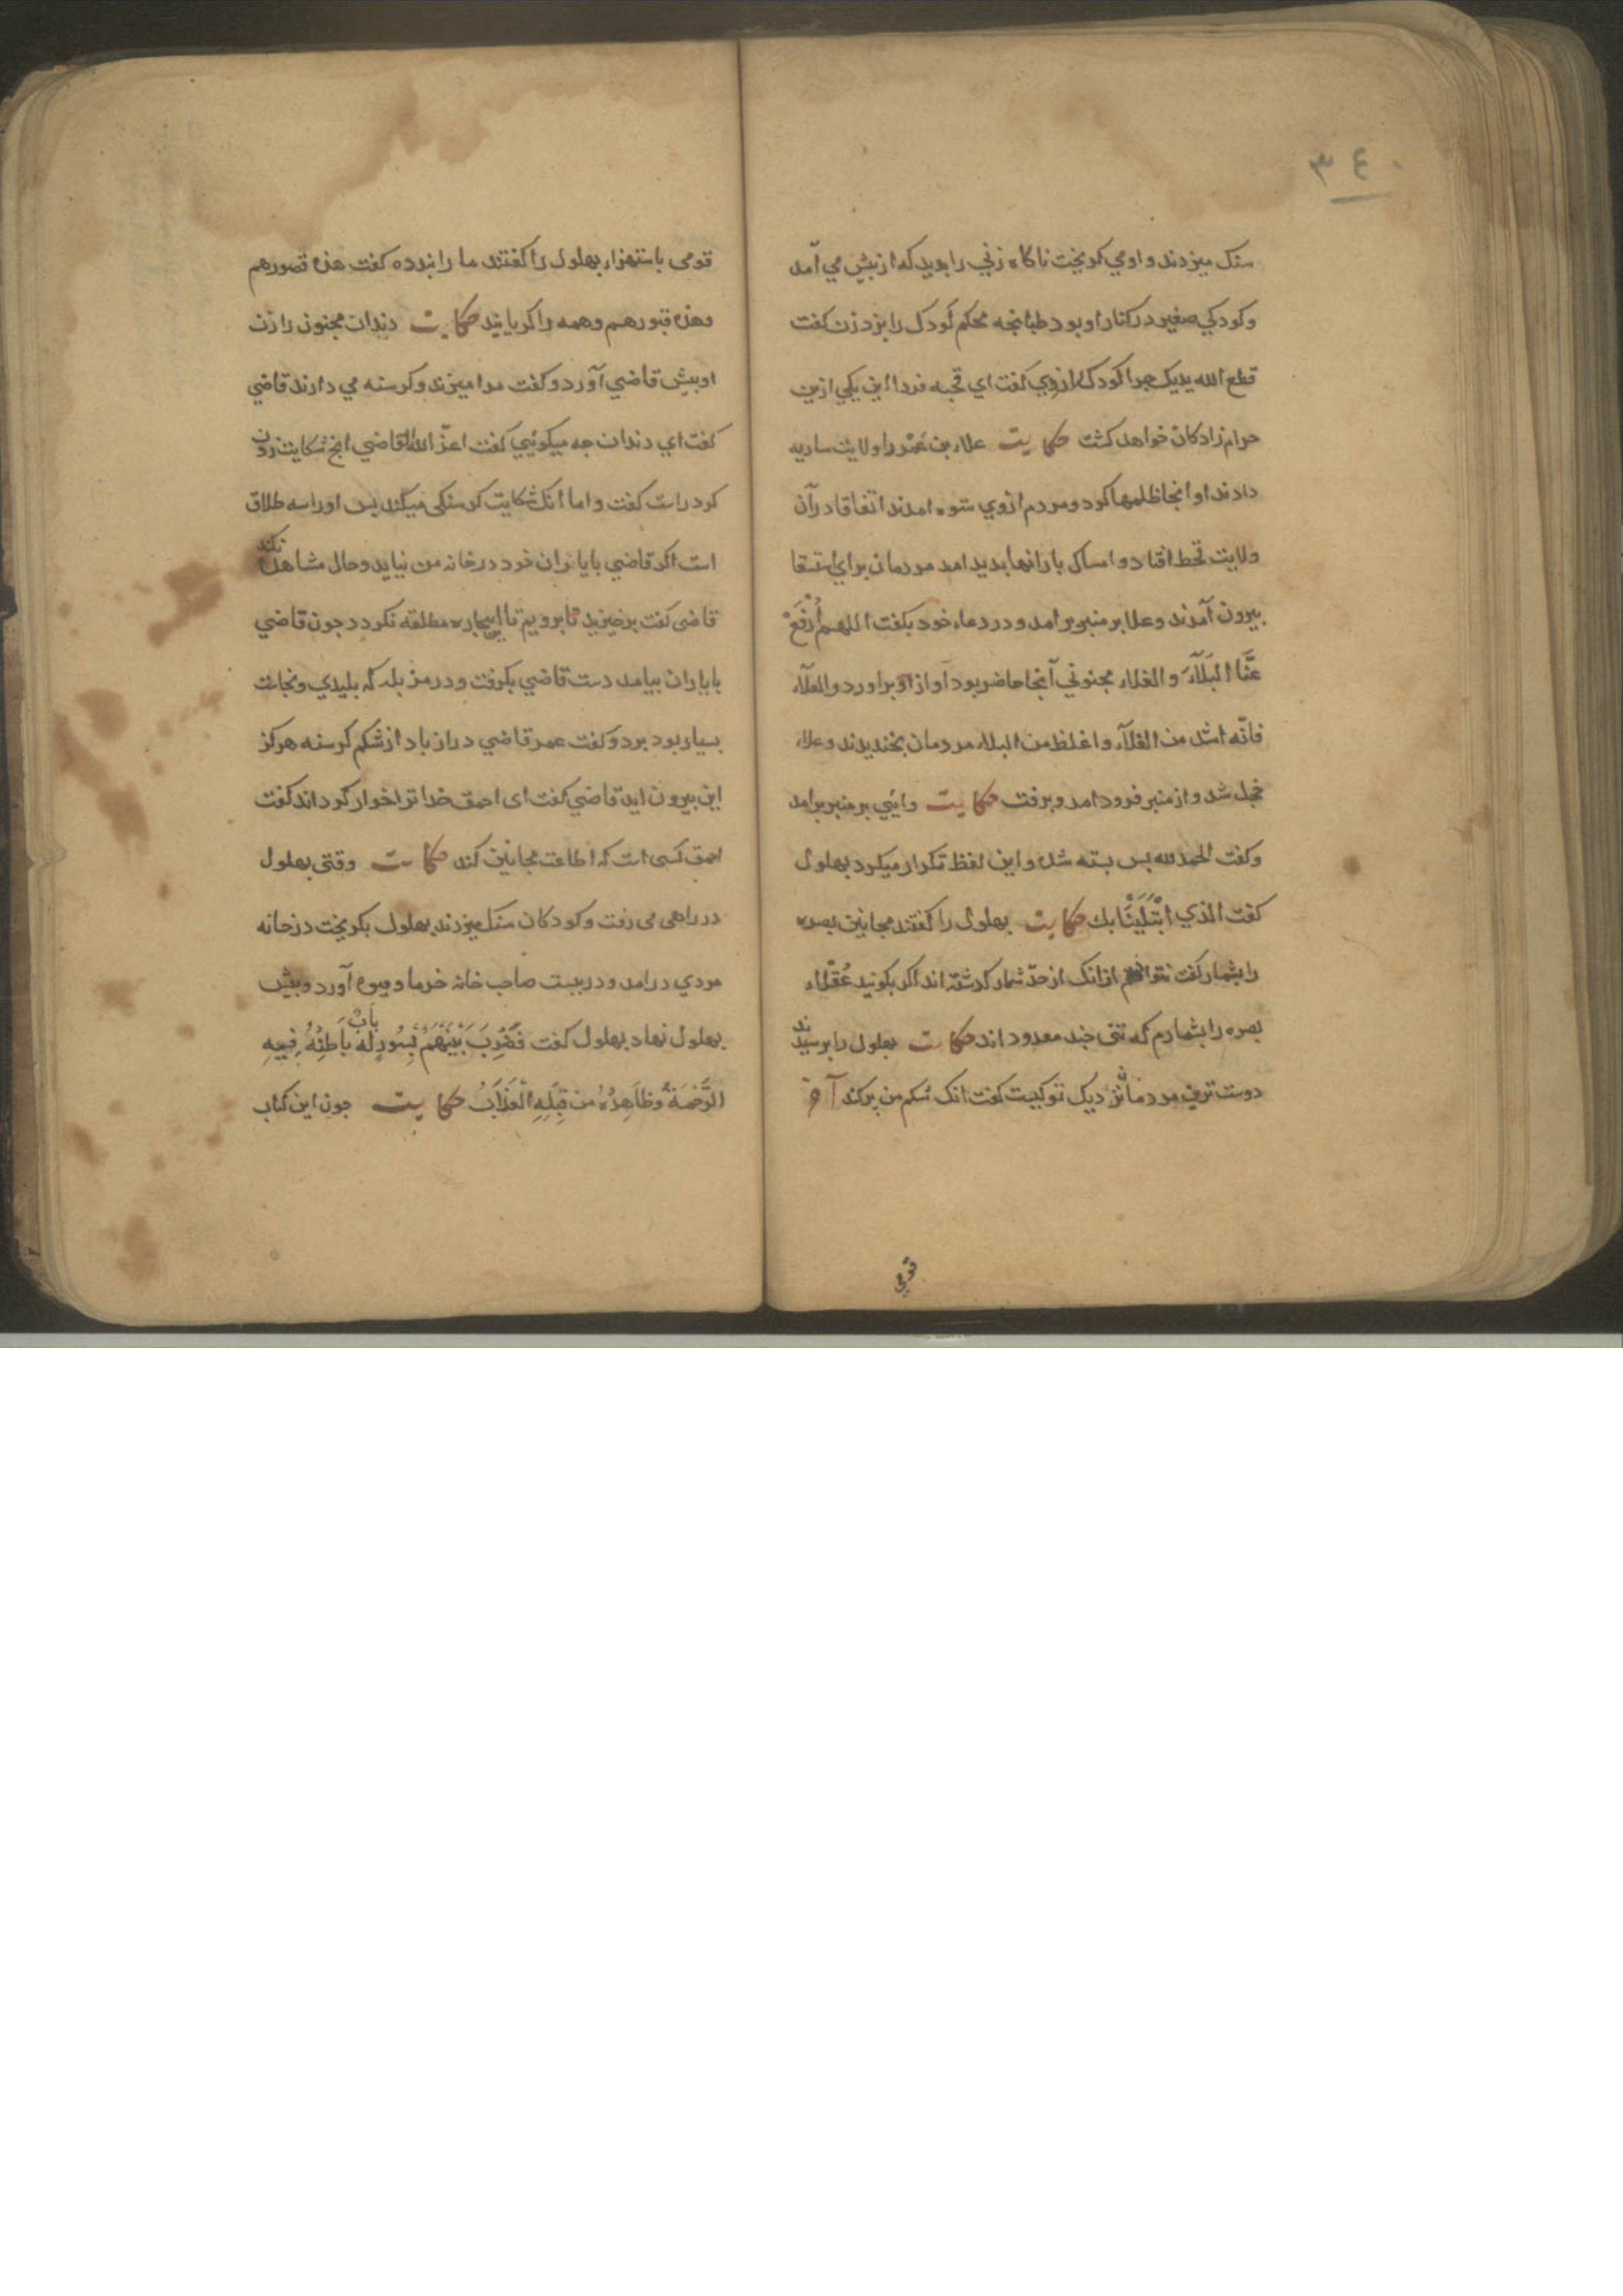 ٣٤٠
سنک میزدند و او می کریخت ناکاه زنی را بدید که از بیش می آمد
و کودکی صغیر در کنار او بود طبانجه محکم کودک را بزد زن کفت
قطع الله یدیک جرا کودک را زدی کفت ای قحبه فردا این یکی ازین
حرام زادکان خواهد کشت حکایت علاء بن عمرو را ولایت ساریه
دادند او انجا ظلمها کرد و مردم ازوی ستوه امدند اتفاقا در آن
ولایت قحط افتاد و امساک بارانها بدید امد مردمان برای استسقا
بیرون آمدند و علا بر منبر بر امد و در دعاء خود بکفت اللهم اُرْفَعْ
عَنَّا البَلَآءَ و الغلاء مجنونی آنجا حاضر بود آواز او براورد والعلآء
فانّه اشد من الغلآء و اغلظ من البلاء مردمان بخندیدند و علاء
خجل شد و از منبر فرود امد و برفت حکایت والیی بر منبر برامد
و کفت الحمد لله بس بسته شد و این لفظ تکرار میکرد بهلول
کفت الذی ابْتَلَیْنَا بك حکایت بهلول را کفتند مجانین بصره
را بشمار کفت نتوانم ازانک از حدّ شمار کذشته اند اکر بکویید عُقَلاء
بصره را بشمارم که تنی جند معدود اند حکایت بهلول را برسیدند
دوست ترین مردمان نزدیک تو کیست کفت انک شکم من بر کند آخر
قومی
قومی باستهزاء بهلول را کفتند ما را بنده کفت هذه قصورهم
وهذه قبورهم و همه را کریانید حکایت دندان مجنون را زن
او بیش قاضی آورد و کفت مرا میزند و کرسنه می دارند قاضی
کفت ای دندان جه میکوئیی کفت اعزّ الله القاضی انج شکایت زدن
کرد راست کفت و اما انک شکایت کرسنکی میکند بس او را سه طلاق
است اکر قاضی با یاران خود در خانه من نیاید و حال مشاهده نکند
قاضی کفت برخیزید تا برویم تا بیجاره مطلقه نکردد جون قاضی
با یاران بیامد دست قاضی بکرفت و در مزبله که بلیدی و نجاست
بسیار بود برد و کفت عمر قاضی دراز باد از شکم کرسنه هرکز
این بیرون اید قاضی کفت ای احمق خدا ترا خوار کرداند کفت
احمق کسی است که اطاعت مجانین کند حکایت وقتی بهلول
در راهی می رفت و کودکان سنک میزدند بهلول بکریخت در خانه
مردی درامد و در ببست صاحب خانه خرما و میوه آورد و بیش
بهلول نهاد بهلول کفت فَضُرِبَ بَیْنَهُمْ بِسُورٍ لَهُ بَابٌ بَاطِنُهُ فِیهِ
الرَّحْمَةُ وَظَاهِرُهُ مِن قِبَلِهِ الْعَذَابُ حکایت جون این کتاب